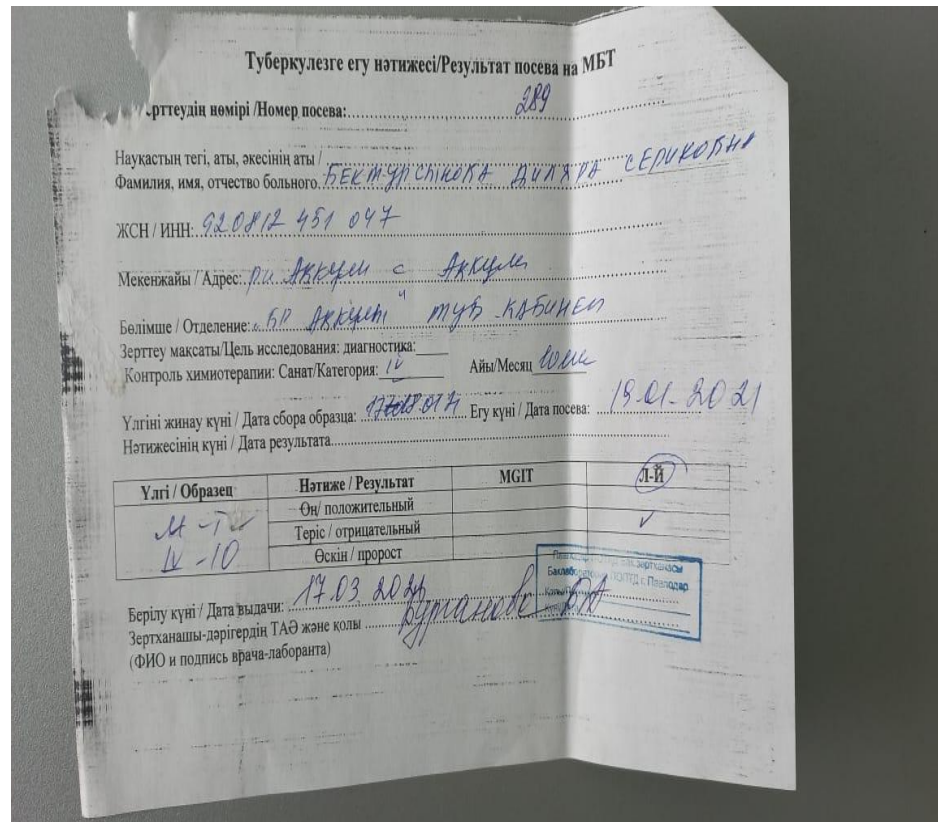 Туберкулезге егу нәтижесі/Результат посева на МБТ
ерттеудің нөмірі /Номер посева: 289
Науқастың тегі, аты, әкесінің аты /
Фамилия, имя, отчество больного. БЕКТУРСЫНОВА ДИЛЯРА СЕРИКОВНА
ЖСН / ИНН: 920812 451 047
Мекенжайы / Адрес: Аққулы с Аққулы
Бөлімше / Отделение: Аққулы туб КАБИНЕТ
Зерттеу мақсаты/Цель исследования: диагностика:
Контроль химиотерапии: Санат/Категория: IV Айы/Месяц 10
Үлгіні жинау күні / Дата сбора образца: Егу күні / Дата посева: 19.01-2021
Нәтижесінің күні / Дата результата
Үлгі / Образец Нәтиже / Результат MGIT Л-Й
Оң/ положительный
Теріс / отрицательный ✓
Өскін / пророст
IV -10
Берілу күні / Дата выдачи: 17.03 2021
Зертханашы-дәрігердің ТАӘ және қолы
(ФИО и подпись врача-лаборанта)